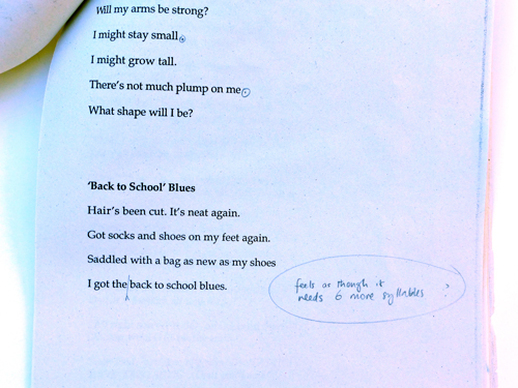 Will my arms be strong?
I might stay small.
I might grow tall.
There's not much plump on me.
What shape will I be?
'Back to School' Blues
Hair's been cut. It's neat again.
Got socks and shoes on my feet again.
Saddled with a bag as new as my shoes
I got the back to school blues.
feels as though it
needs 6 more syllables ?